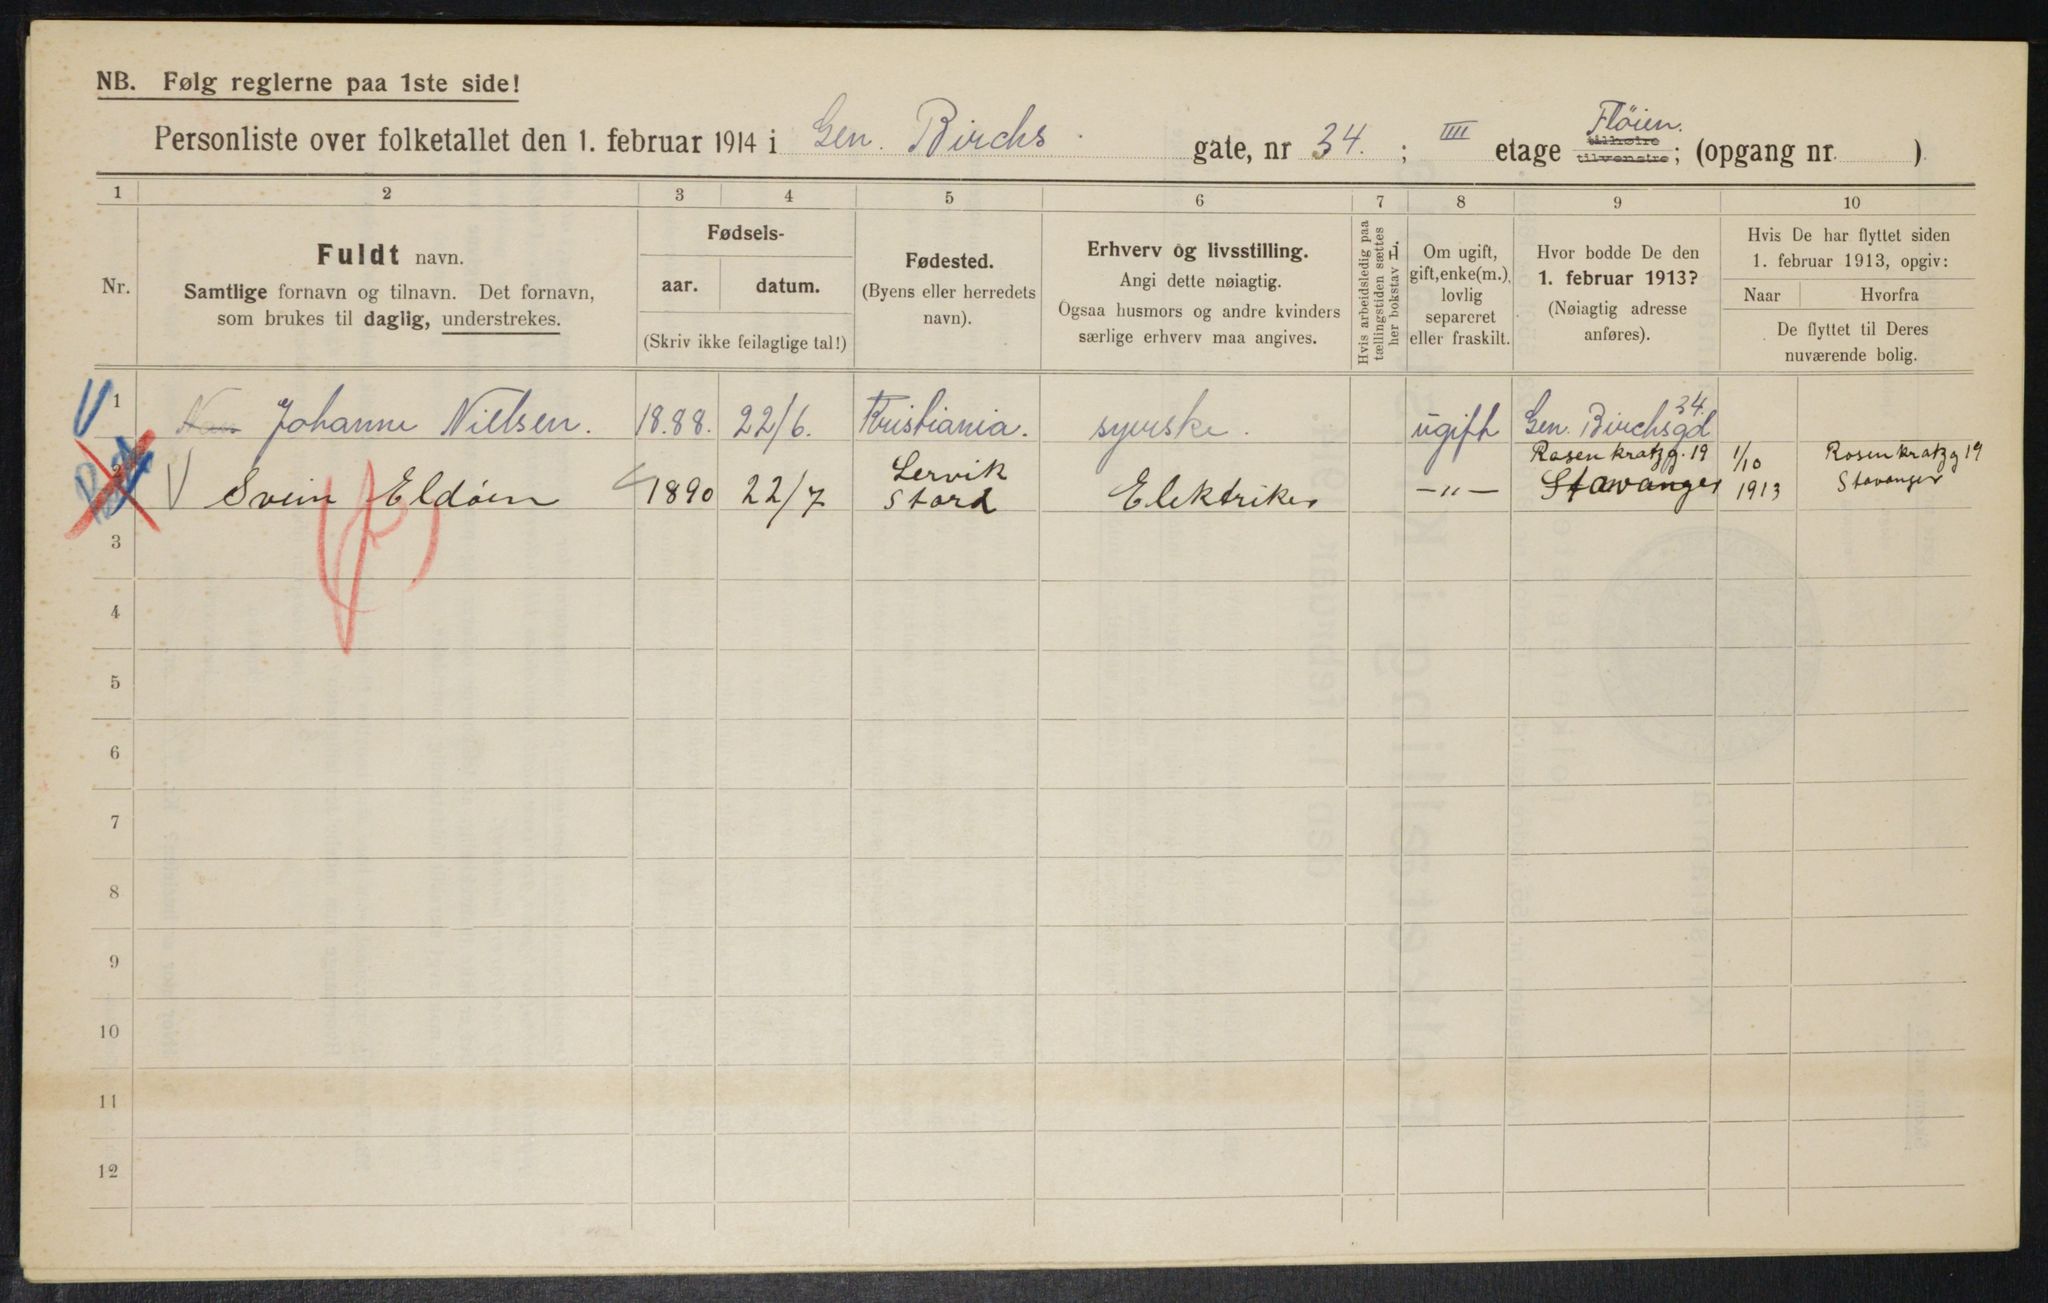 NB. Følg reglerne paa 1ste side!
Personliste over folketallet den 1. februar 1914 i Gen. Birchs gate, nr 34. ; IIII etage tilhøire tilvenstre Fløien. ; (opgang nr. )
1 2 3 4 5 6 7 8 9 10
Nr.
Fuldt navn.
Samtlige fornavn og tilnavn. Det fornavn,
som brukes til daglig, understrekes.
Fødsels-
aar. datum.
(Skriv ikke feilagtige tal!)
Fødested.
(Byens eller herredets
navn).
Erhverv og livsstilling.
Angi dette nøiagtig.
Ogsaa husmors og andre kvinders
særlige erhverv maa angives.
Hvis arbeidsledig paa
tællingstiden sættes
her bokstav L.
Om ugift,
gift, enke(m.),
lovlig
separeret
eller fraskilt.
Hvor bodde De den
1. februar 1913?
(Nøiagtig adresse
anføres).
Hvis De har flyttet siden
1. februar 1913, opgiv:
Naar Hvorfra
De flyttet til Deres
nuværende bolig.
1 Johanne Nielsen. 1888. 22/6. Kristiania. syerske. ugift Gen. Birchsgd 34.
2 Svein Eldøen 1890 22/7 Lervik Stord Elektriker —"— Rosenkratzg. 19 Stawanger 1/10 1913 Rosenkratzg 19 Stavanger
3
4
5
6
7
8
9
10
11
12